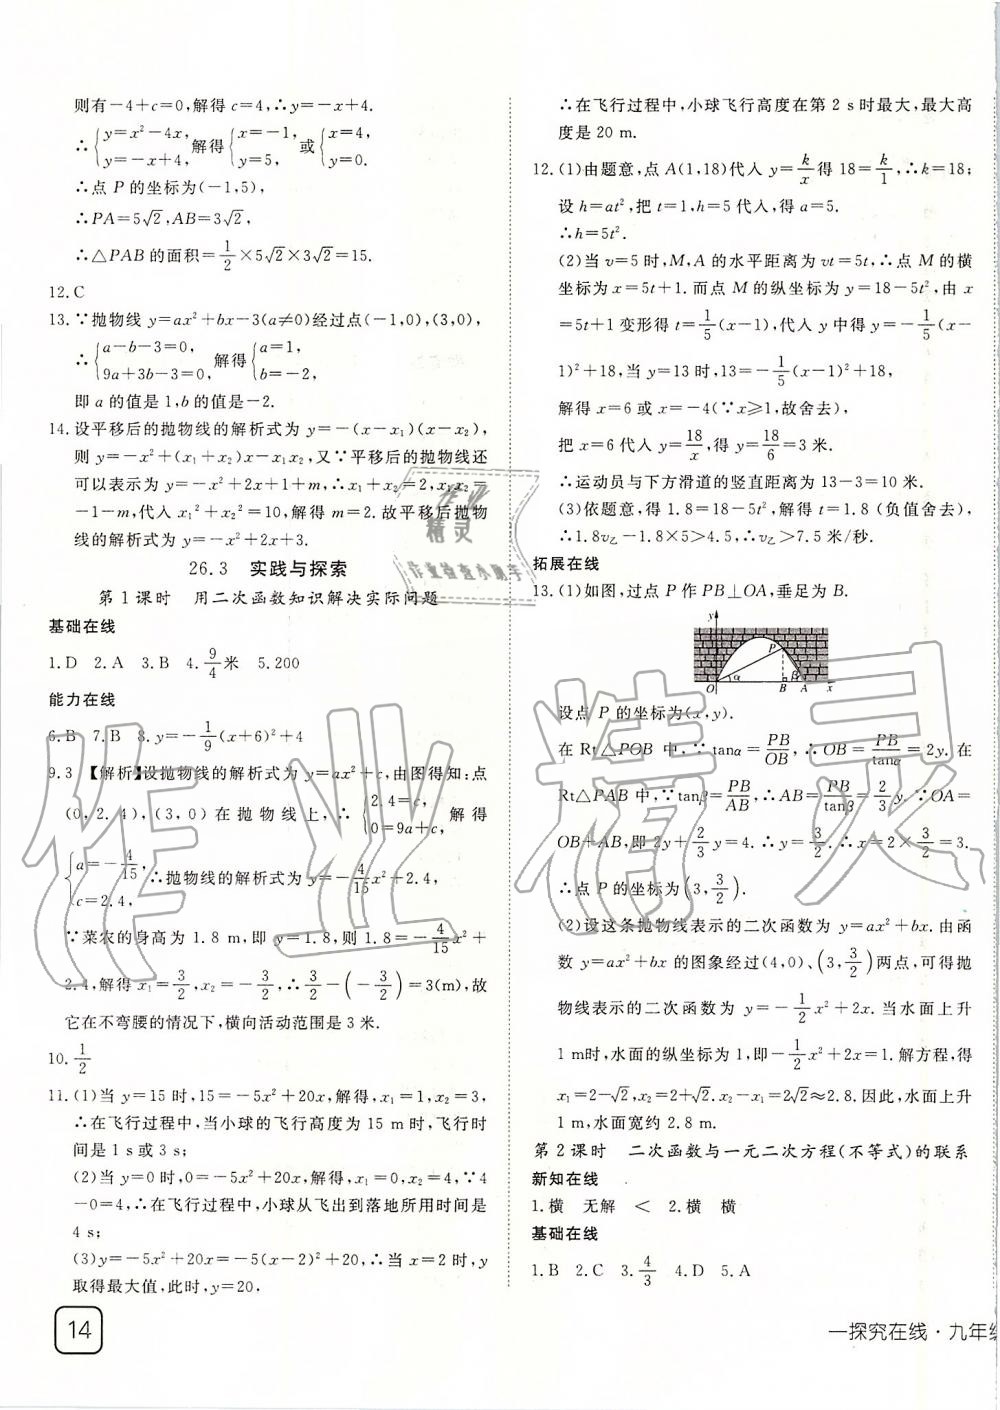 则有-4+c=0,解得 c=4,∴y=-x+4.
∴{y=x²-4x, y=-x+4, 解得{x=-1, y=5, 或{x=4, y=0,
∴点 P 的坐标为(-1,5),
∴PA=5√2,AB=3√2,
∴△PAB 的面积=1/2×5√2×3√2=15.
12.C
13.∵抛物线 y=ax²+bx-3(a≠0)经过点(-1,0),(3,0),
∴{a-b-3=0, 9a+3b-3=0, 解得{a=1, b=-2.
即 a 的值是 1,b 的值是-2.
14.设平移后的抛物线的解析式为 y=-(x-x₁)(x-x₂),
则 y=-x²+(x₁+x₂)x-x₁x₂,又∵平移后的抛物线还
可以表示为 y=-x²+2x+1+m,∴x₁+x₂=2,x₁x₂=
-1-m,代入 x₁²+x₂²=10,解得 m=2.故平移后抛物
线的解析式为 y=-x²+2x+3.
26.3 实践与探索
第 1 课时 用二次函数知识解决实际问题
基础在线
1.D 2.A 3.B 4.9/4米 5.200
能力在线
6.B 7.B 8.y=-1/9(x+6)²+4
9.3 【解析】设抛物线的解析式为 y=ax²+c,由图得知:点
(0,2.4),(3,0)在抛物线上,∴{2.4=c, 0=9a+c, 解得
{a=-4/15, c=2.4, ∴抛物线的解析式为 y=-4/15x²+2.4,
∵菜农的身高为 1.8 m,即 y=1.8,则 1.8=-4/15x²+
2.4,解得 x₁=3/2,x₂=-3/2,∴3/2-(-3/2)=3(m),故
它在不弯腰的情况下,横向活动范围是 3 米.
10.1/2
11.(1)当 y=15 时,15=-5x²+20x,解得,x₁=1,x₂=3,
∴在飞行过程中,当小球的飞行高度为 15 m 时,飞行时
间是 1 s 或 3 s;
(2)当 y=0 时,0=-5x²+20x,解得,x₁=0,x₂=4,∵4
-0=4,∴在飞行过程中,小球从飞出到落地所用时间是
4 s;
(3)y=-5x²+20x=-5(x-2)²+20,∴当 x=2 时,y
取得最大值,此时,y=20,
14
∴在飞行过程中,小球飞行高度在第 2 s 时最大,最大高
度是 20 m.
12.(1)由题意,点 A(1,18)代入 y=k/x得 18=k/1,∴k=18;
设 h=at²,把 t=1,h=5 代入,得 a=5.
∴h=5t².
(2)当 v=5 时,M,A 的水平距离为 vt=5t,∴点 M 的横
坐标为 x=5t+1.而点 M 的纵坐标为 y=18-5t²,由 x
=5t+1 变形得 t=1/5(x-1),代入 y 中得 y=-1/5(x-
1)²+18,当 y=13 时,13=-1/5(x-1)²+18,
解得 x=6 或 x=-4(∵x≥1,故舍去),
把 x=6 代入 y=18/x,得 y=18/6=3 米.
∴运动员与下方滑道的竖直距离为 13-3=10 米.
(3)依题意,得 1.8=18-5t²,解得 t=1.8 (负值舍去),
∴1.8v乙-1.8×5>4.5,∴v乙>7.5 米/秒.
拓展在线
13.(1)如图,过点 P 作 PB⊥OA,垂足为 B.
y P O α B β A x
设点 P 的坐标为(x,y).
在 Rt△POB 中,∵tanα=PB/OB,∴OB=PB/tanα=2y.在
Rt△PAB 中,∵tanβ=PB/AB,∴AB=PB/tanβ=2/3y.∵OA=
OB+AB,即 2y+2/3y=4.∴y=3/2.∴x=2×3/2=3.
∴点 P 的坐标为(3,3/2).
(2)设这条抛物线表示的二次函数为 y=ax²+bx.由函
数 y=ax²+bx 的图象经过(4,0)、(3,3/2)两点,可得抛
物线表示的二次函数为 y=-1/2x²+2x.当水面上升
1 m时,水面的纵坐标为 1,即-1/2x²+2x=1.解方程,得
x₁=2-√2,x₂=2+√2.x₂-x₁=2√2≈2.8.因此,水面上升
1 m,水面宽约 2.8 m.
第 2 课时 二次函数与一元二次方程(不等式)的联系
新知在线
1.横 无解 < 2.横 横
基础在线
1.B 2.C 3.4/3 4.D 5.A
一探究在线·九年级
作业精灵
作业精灵
作业检查小助手